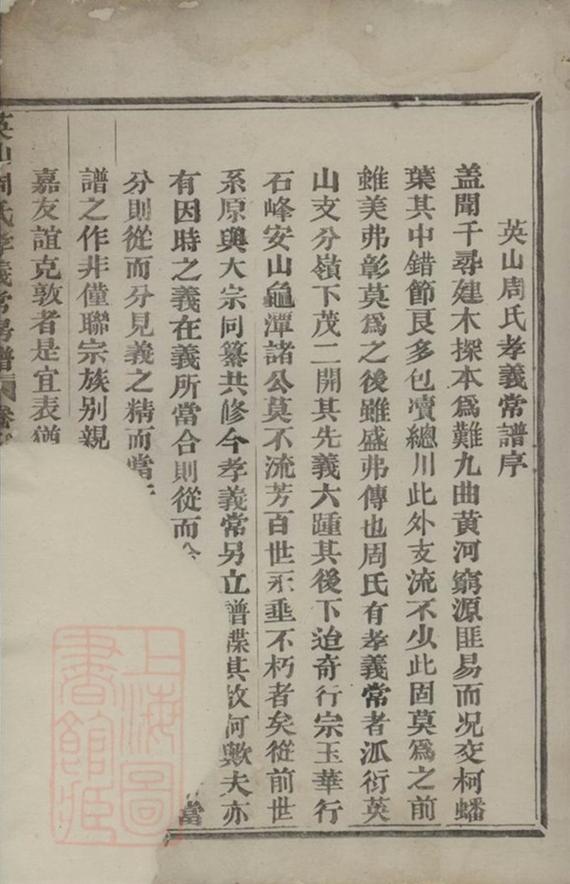 英山周氏孝義常譜序
蓋聞千尋建木探本爲難九曲黄河窮源匪易而况交柯蟠
葉其中錯節良多包瀆總川此外支流不少此固莫爲之前
雖美弗彰莫爲之後雖盛弗傳也周氏有孝義常者泒衍英
山支分嶺下茂二開其先義六踵其後下迨奇行宗玉華行
石峰安山龜潭諸公莫不流芳百世永垂不朽者矣從前世
系原與大宗同纂共修今孝義常另立譜牒其故何歟夫亦
有因時之義在義所當合則從而合當
分則從而分見義之精而當
譜之作非僅聯宗族别親
嘉友誼克敦者是宜表猶
英山周氏孝義常房譜
上海圖書館藏